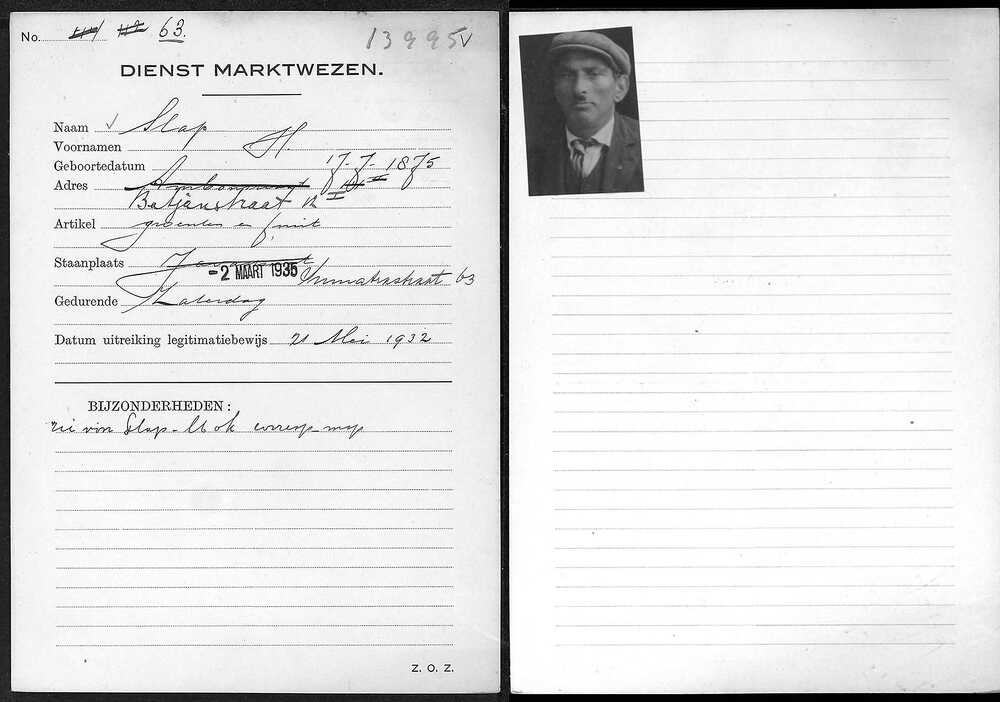 No. 63.
13995 V
DIENST MARKTWEZEN.
Naam Slap
Voornamen H.
Geboortedatum 17-7-1875
Adres
Batjanstraat 12 II
Artikel groenten en fruit
Staanplaats
-2 MAART 1936 63
Gedurende Zaterdag
Datum uitreiking legitimatiebewijs 21 Mei 1932
BIJZONDERHEDEN:
Slap-Blok corresp-map
Z. O. Z.